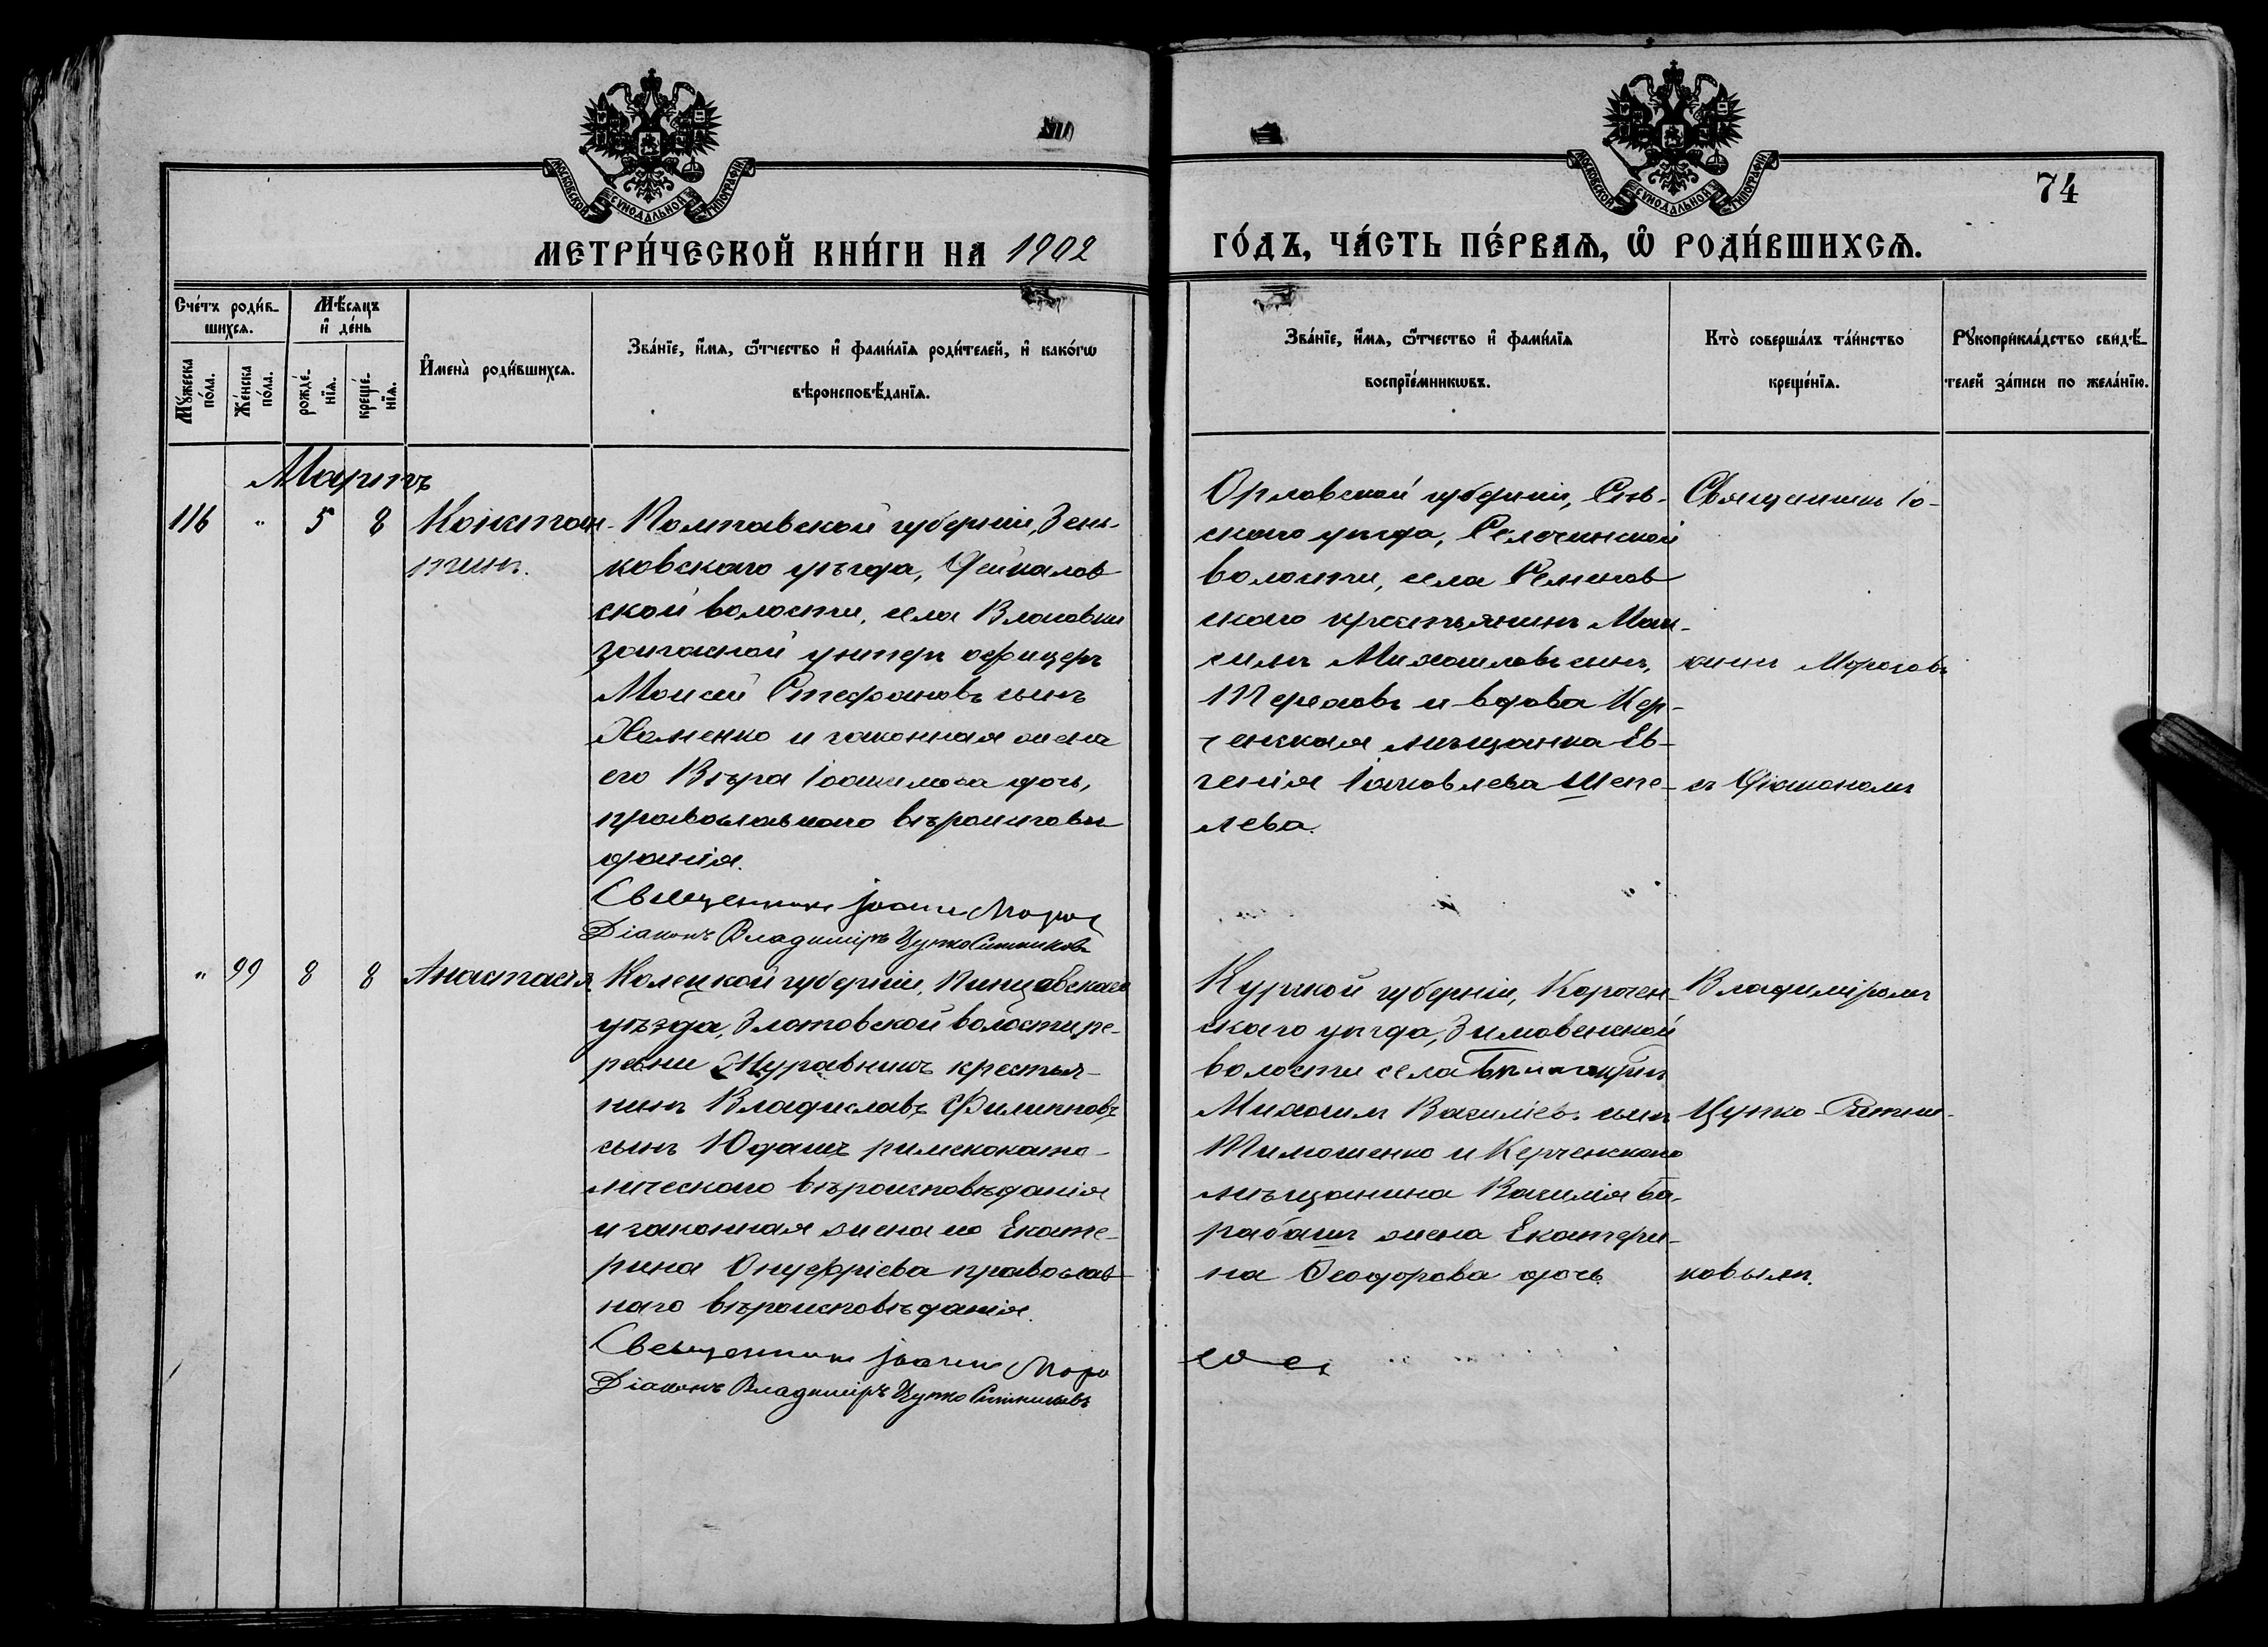 74
МОСКОВСКОЙ СУНОДАЛЬНОЙ ТИПОГРАФІИ
МОСКОВСКОЙ СУНОДАЛЬНОЙ ТИПОГРАФІИ
МЕТРИ́ЧЕСКОЙ КНИ́ГИ НА 1902
ГО́ДЪ, ЧА́СТЬ ПЕ́РВАѦ, Ѡ҆ РОДИ́ВШИХСѦ.
Сче́тъ роди́в-
шихсѧ.
Мѣ́сѧцъ
и҆ де́нь
Мꙋ́жеска
по́ла.
Же́нска
по́ла.
рожде́-
нїѧ.
креще́-
нїѧ.
И҆мена̀ роди́вшихсѧ.
Зва́нїе, и҆́мѧ, ѻ҆́тчество и҆ фами́лїѧ роди́телей, и҆ како́гѡ
вѣроисповѣ́данїѧ.
Зва́нїе, и҆́мѧ, ѻ҆́тчество и҆ фами́лїѧ
воспрїе́мникѡвъ.
Кто̀ соверша́лъ та́инство
креще́нїѧ.
Рꙋкоприкла́дство свидѣ́-
телей за́писи по жела́нїю.
Мартъ
116 " 5 8 Констан-
тинъ.
Полтавской губерніи, Зень-
ковскаго уѣзда,
ской волости, села Власовки
запасной унтеръ офицеръ
Моисей Стефановъ сынъ
Хоменко и законная жена
его Вѣра Іоакимова дочь,
православнаго вѣроисповѣ
данія.
Священникъ Іоаннъ Мороз
Діаконъ Владиміръ Цупко Ситниковъ
Орловской губерніи, Сѣв-
скаго уѣзда, Селечинской
волости, села
скаго крестьянинъ Мак-
симъ Михаиловъ сынъ,
Тереховъ и вдова Кер-
ченская мѣщанка Ев-
генія Іаковлева Шепе-
лева.
Священникъ Іо-
аннъ Морозовъ
съ Діакономъ
" 99 8 8 Анастасія.
Келецкой губерніи, Пинчовскаго
уѣзда, Злотовской волости, де-
ревни Журавникъ крестья-
нинъ Владиславъ Филипповъ
сынъ Юдашъ римскокато-
лическаго вѣроисповѣданія
и законная жена его Екате-
рина Онуфріева православ-
наго вѣроисповѣданія.
Священникъ Іоаннъ Моро
Діаконъ Владиміръ Цупко Ситниковъ
Курской губерніи, Корочен-
скаго уѣзда, Зимовенской
волости села
Михаилъ Василіевъ сынъ
Тимошенко и Керченскаго
мѣщанина Василія Ба-
рабашъ жена Екатери-
на Ѳеодорова дочь.
Владиміромъ
Цупко-Ситни-
ковымъ.